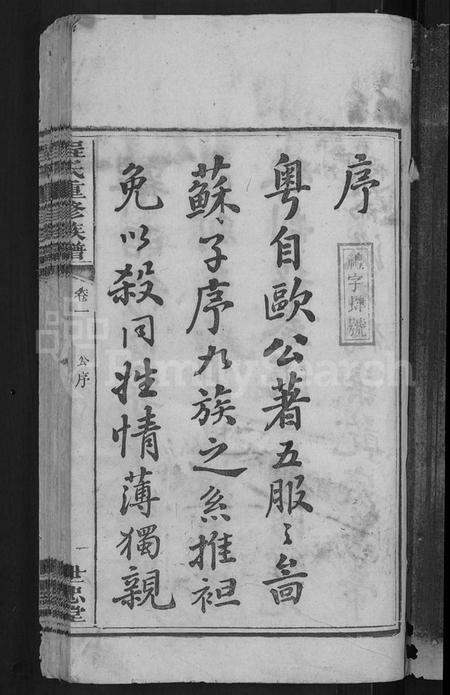 序
禮字 號
粤自歐公著五服之啚
蘇子序九族之系推袒
免以殺同姓情薄獨親
程氏重修族譜
卷一
公序
一
世忠堂
FamilySearch